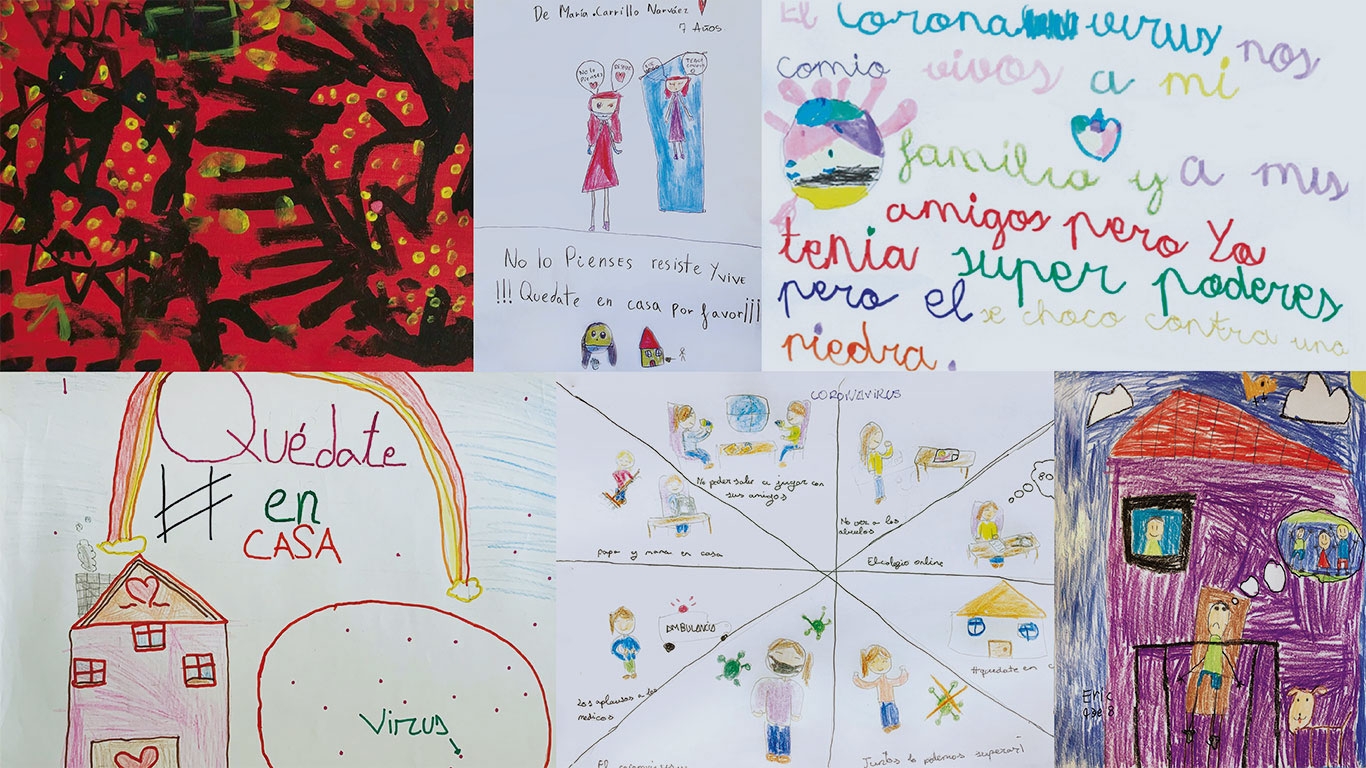 De María Carrillo Narváez
7 Años
No lo
Pienses
No lo Pienses resiste Y vive
!!! Quedate en casa por favor¡¡¡
El corona virus nos
comio vivos a mi
familia y a mis
amigos pero Yo
tenia super poderes
pero el se choco contra una
piedra.
Quédate
# en
CASA
Virus
CORONAVIRUS
No poder salir a jugar con
sus amigos
No ver a los
abuelos
papa y mama en casa
El colegio online
AMBULANCIA
Los aplausos a los
medicos
#quedate en c
Juntos lo podemos superar!
Eric